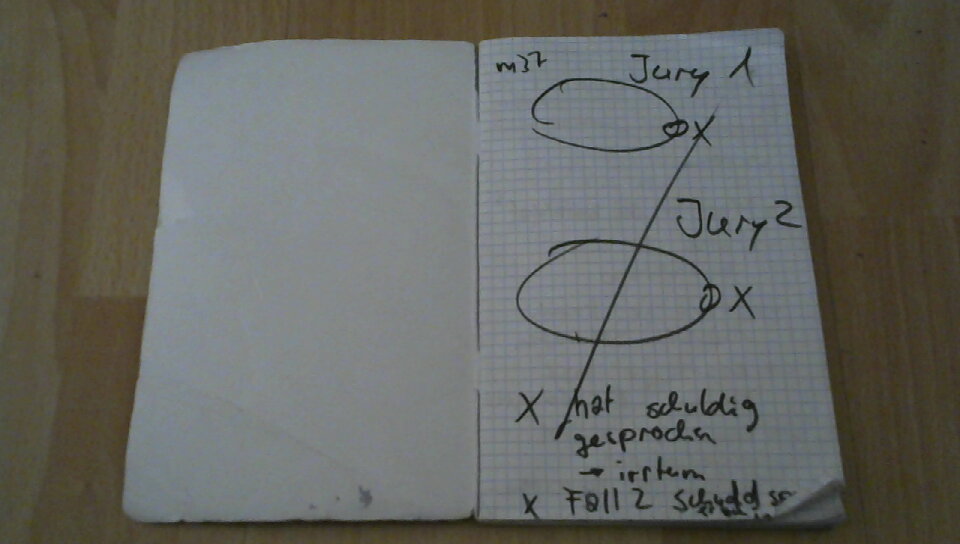 m37
Jury 1
X
Jury 2
X
X hat schuldig
gesprochen
→ irrtum
X Fall 2